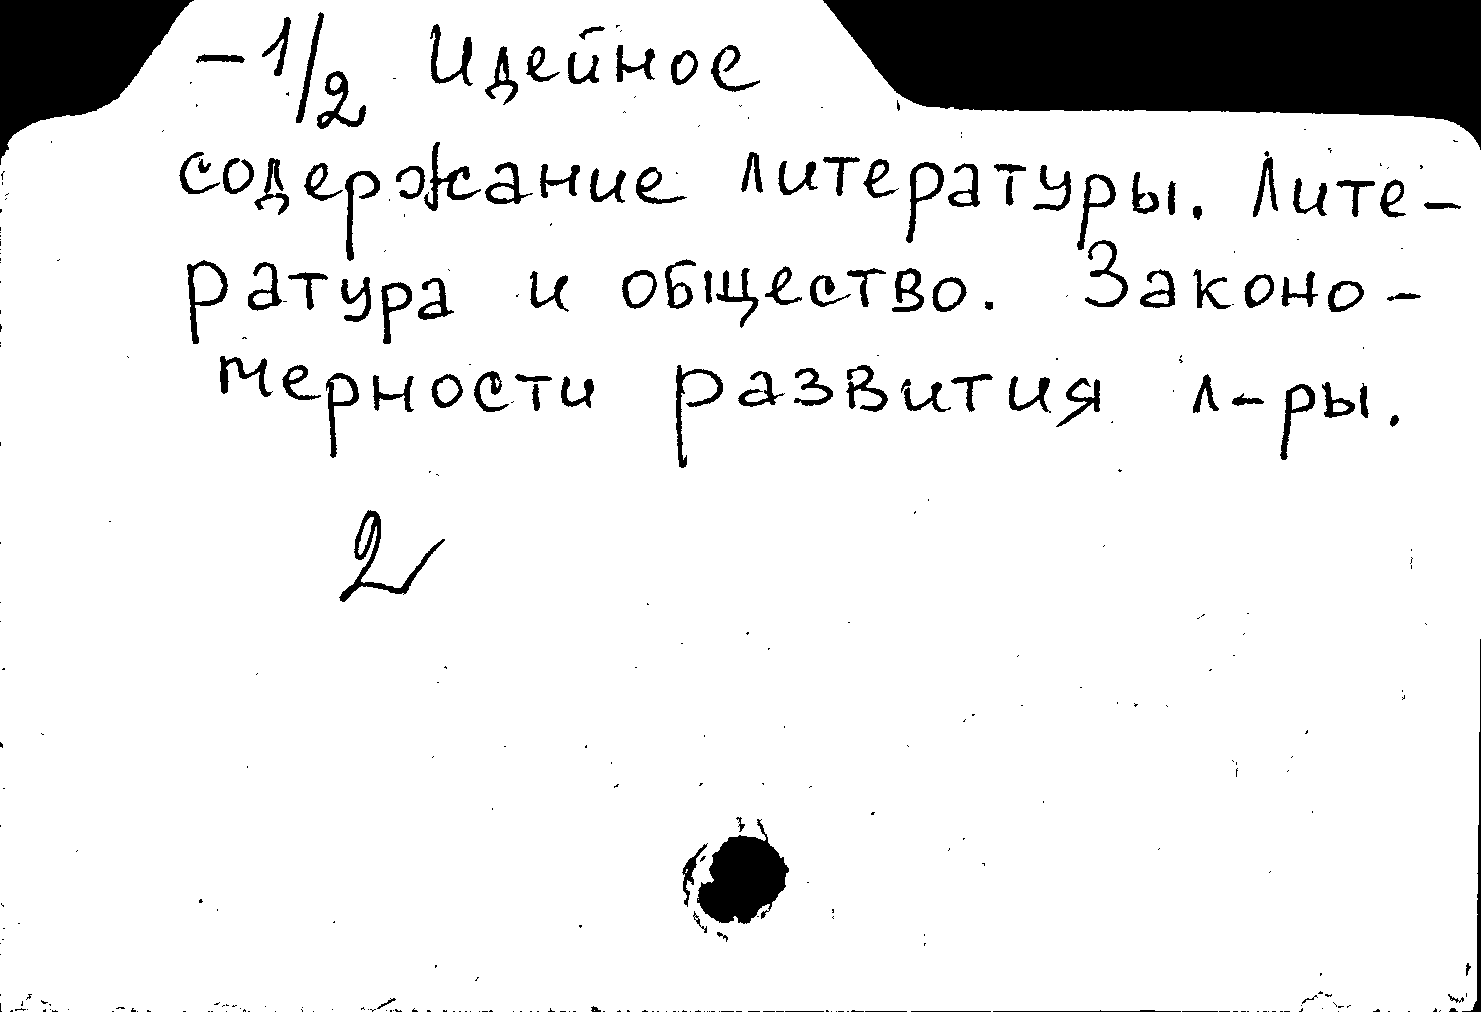 -1/2 Идейное
содержание литературы. Лите-
ратура и общество. Законо-
мерности развития л-ры.
2